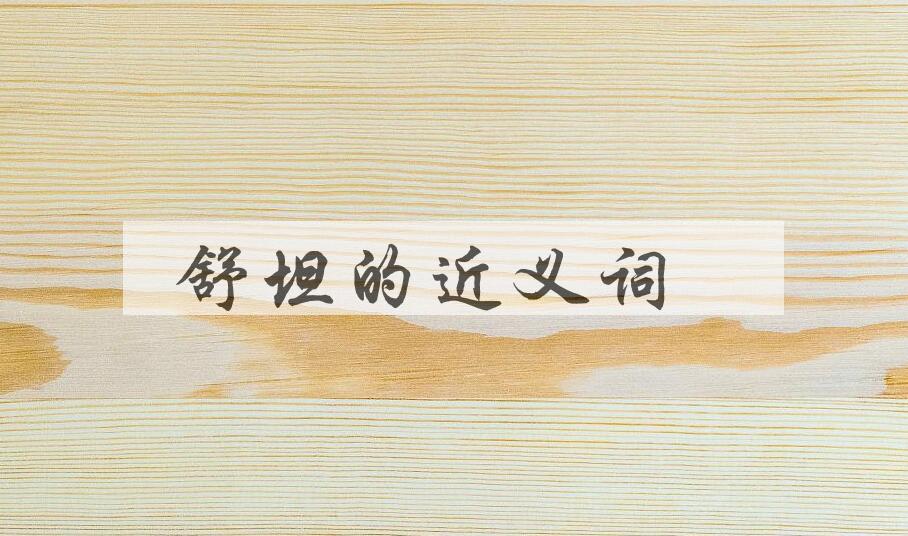 舒坦的近义词